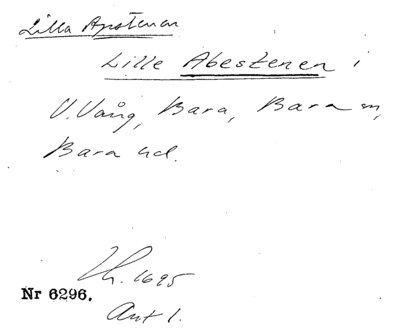 Lilla Apstenen
Lille Abestenen i
V. Vång, Bara, Bara sn,
Bara hd.
Lh. 1695
Nr 6296.
Ant 1.